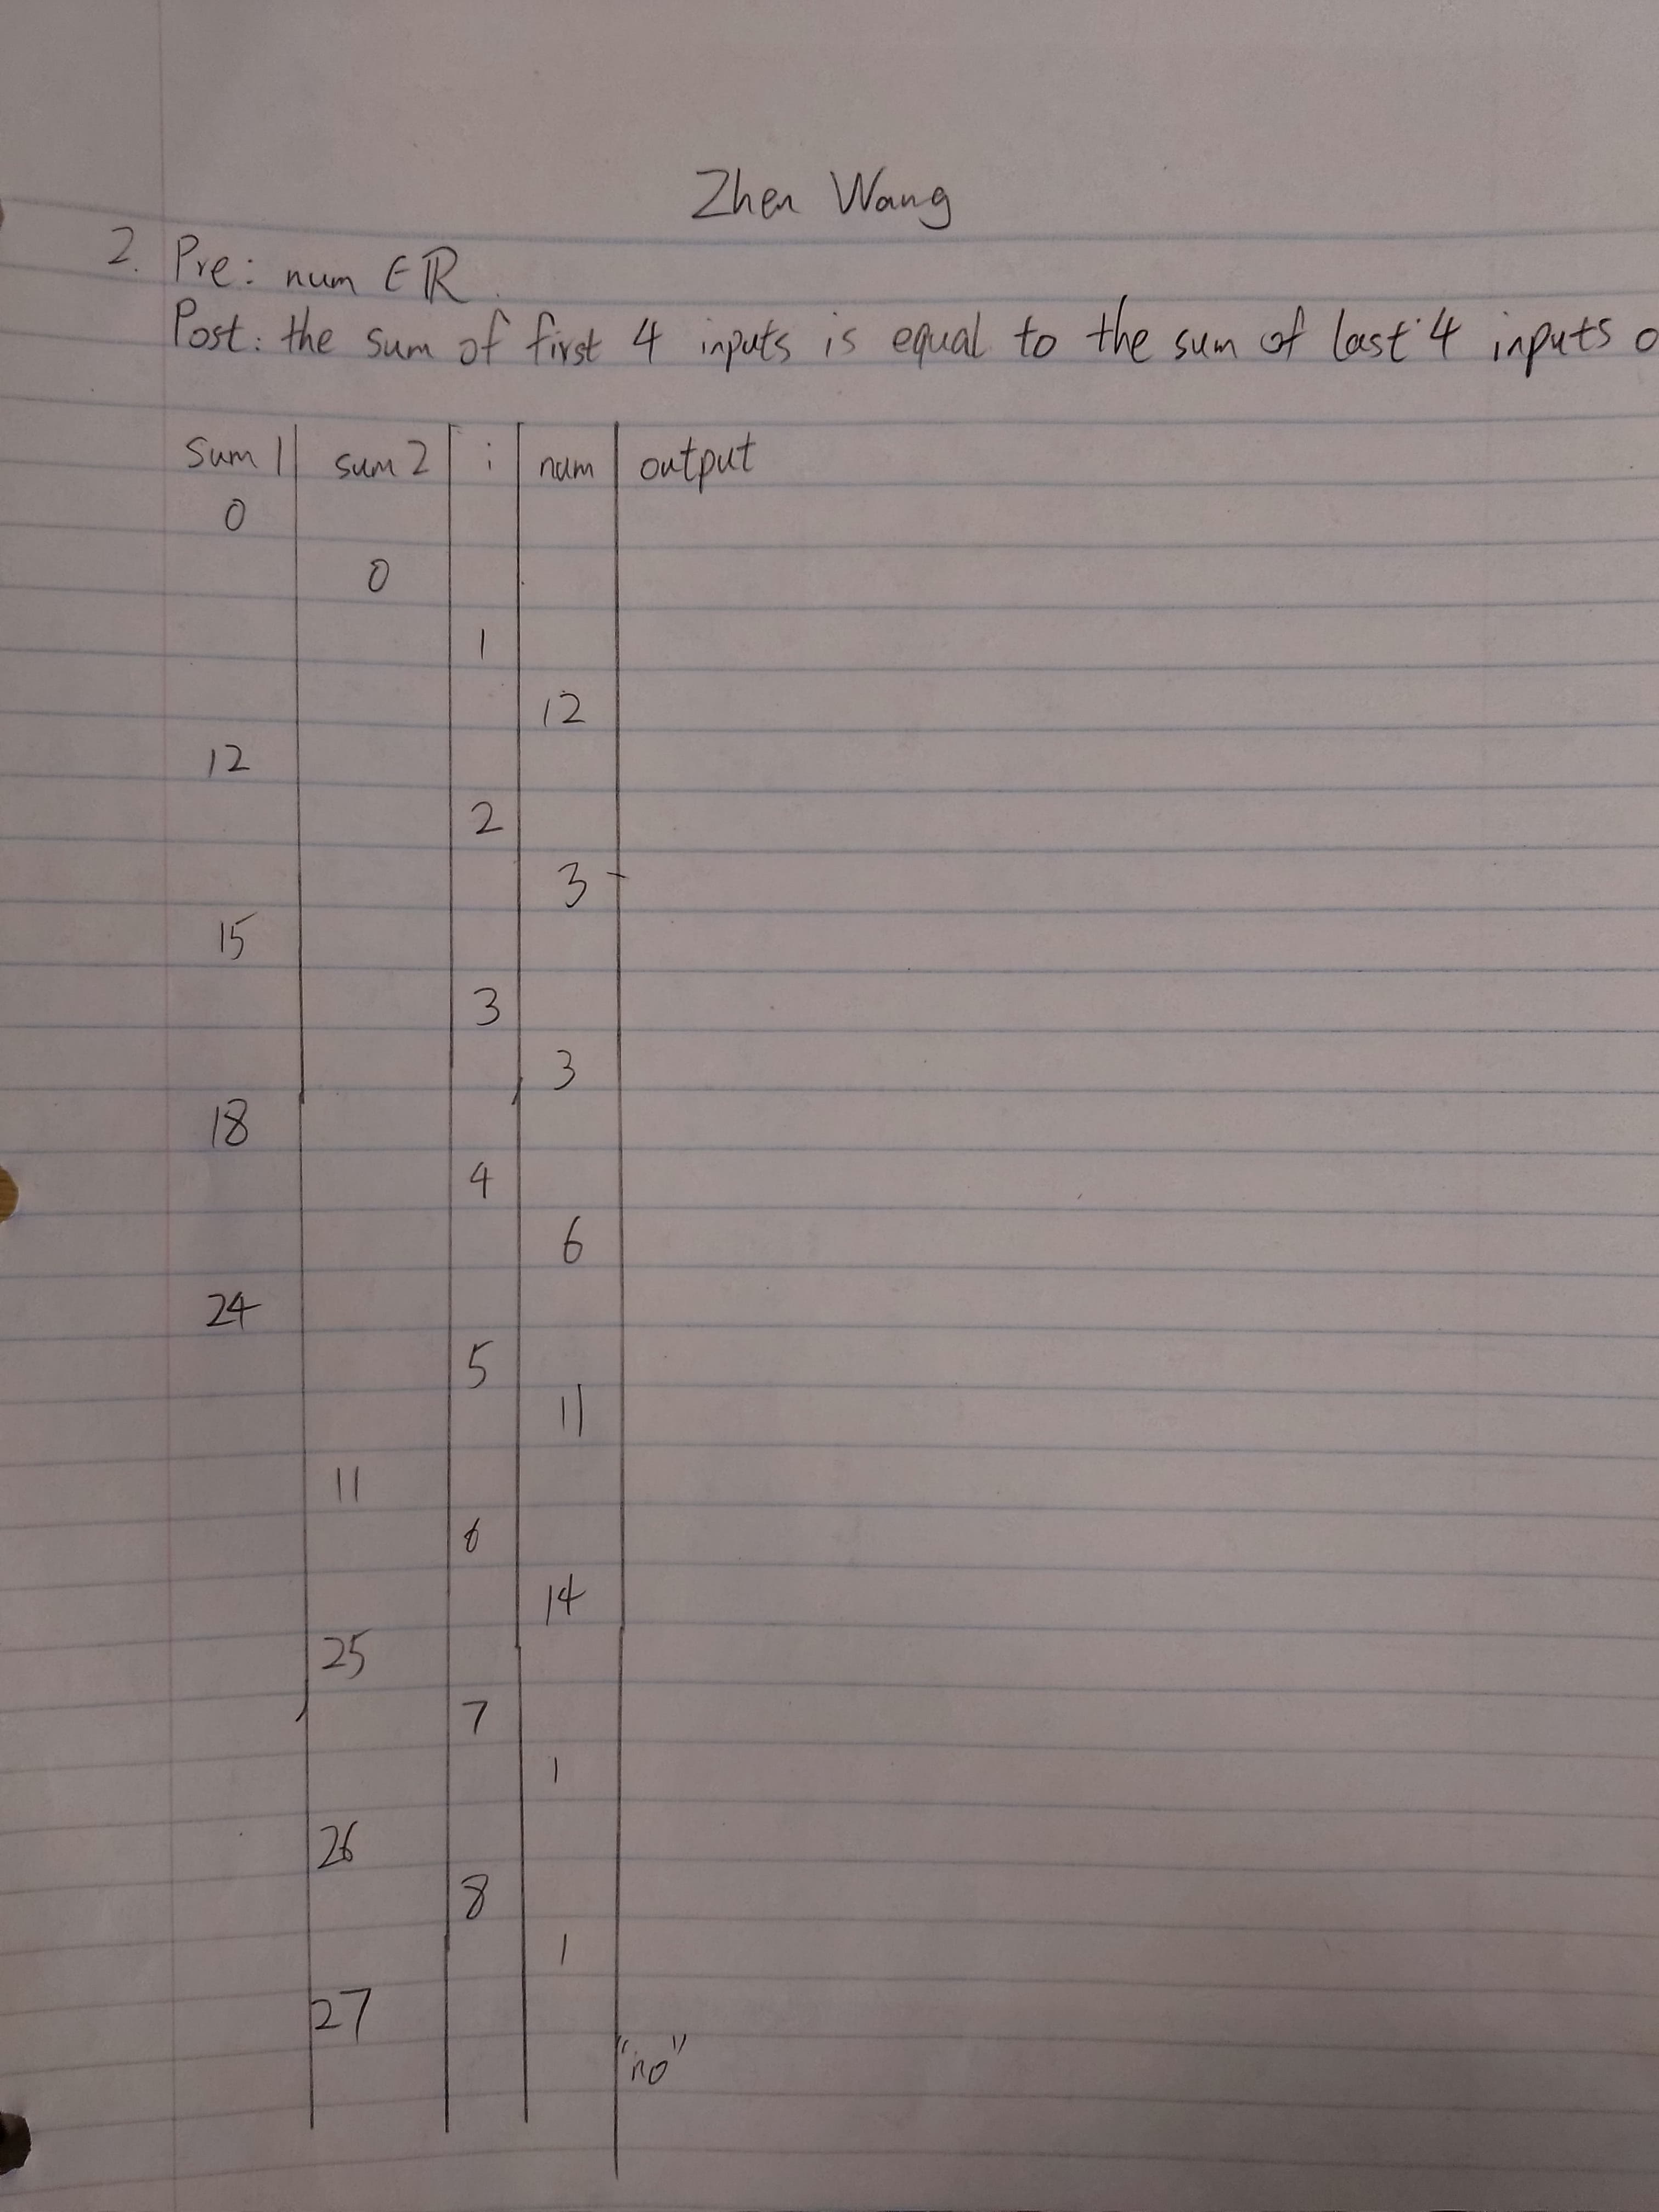 Zhen Wang
2. Pre: num ∈ ℝ.
Post: the sum of first 4 inputs is equal to the sum of last 4 inputs
sum 1 sum 2 i num output
0
0
1
12
12
2
3
15
3
3
18
4
6
24
5
11
11
6
14
25
7
1
26
8
1
27
"no"